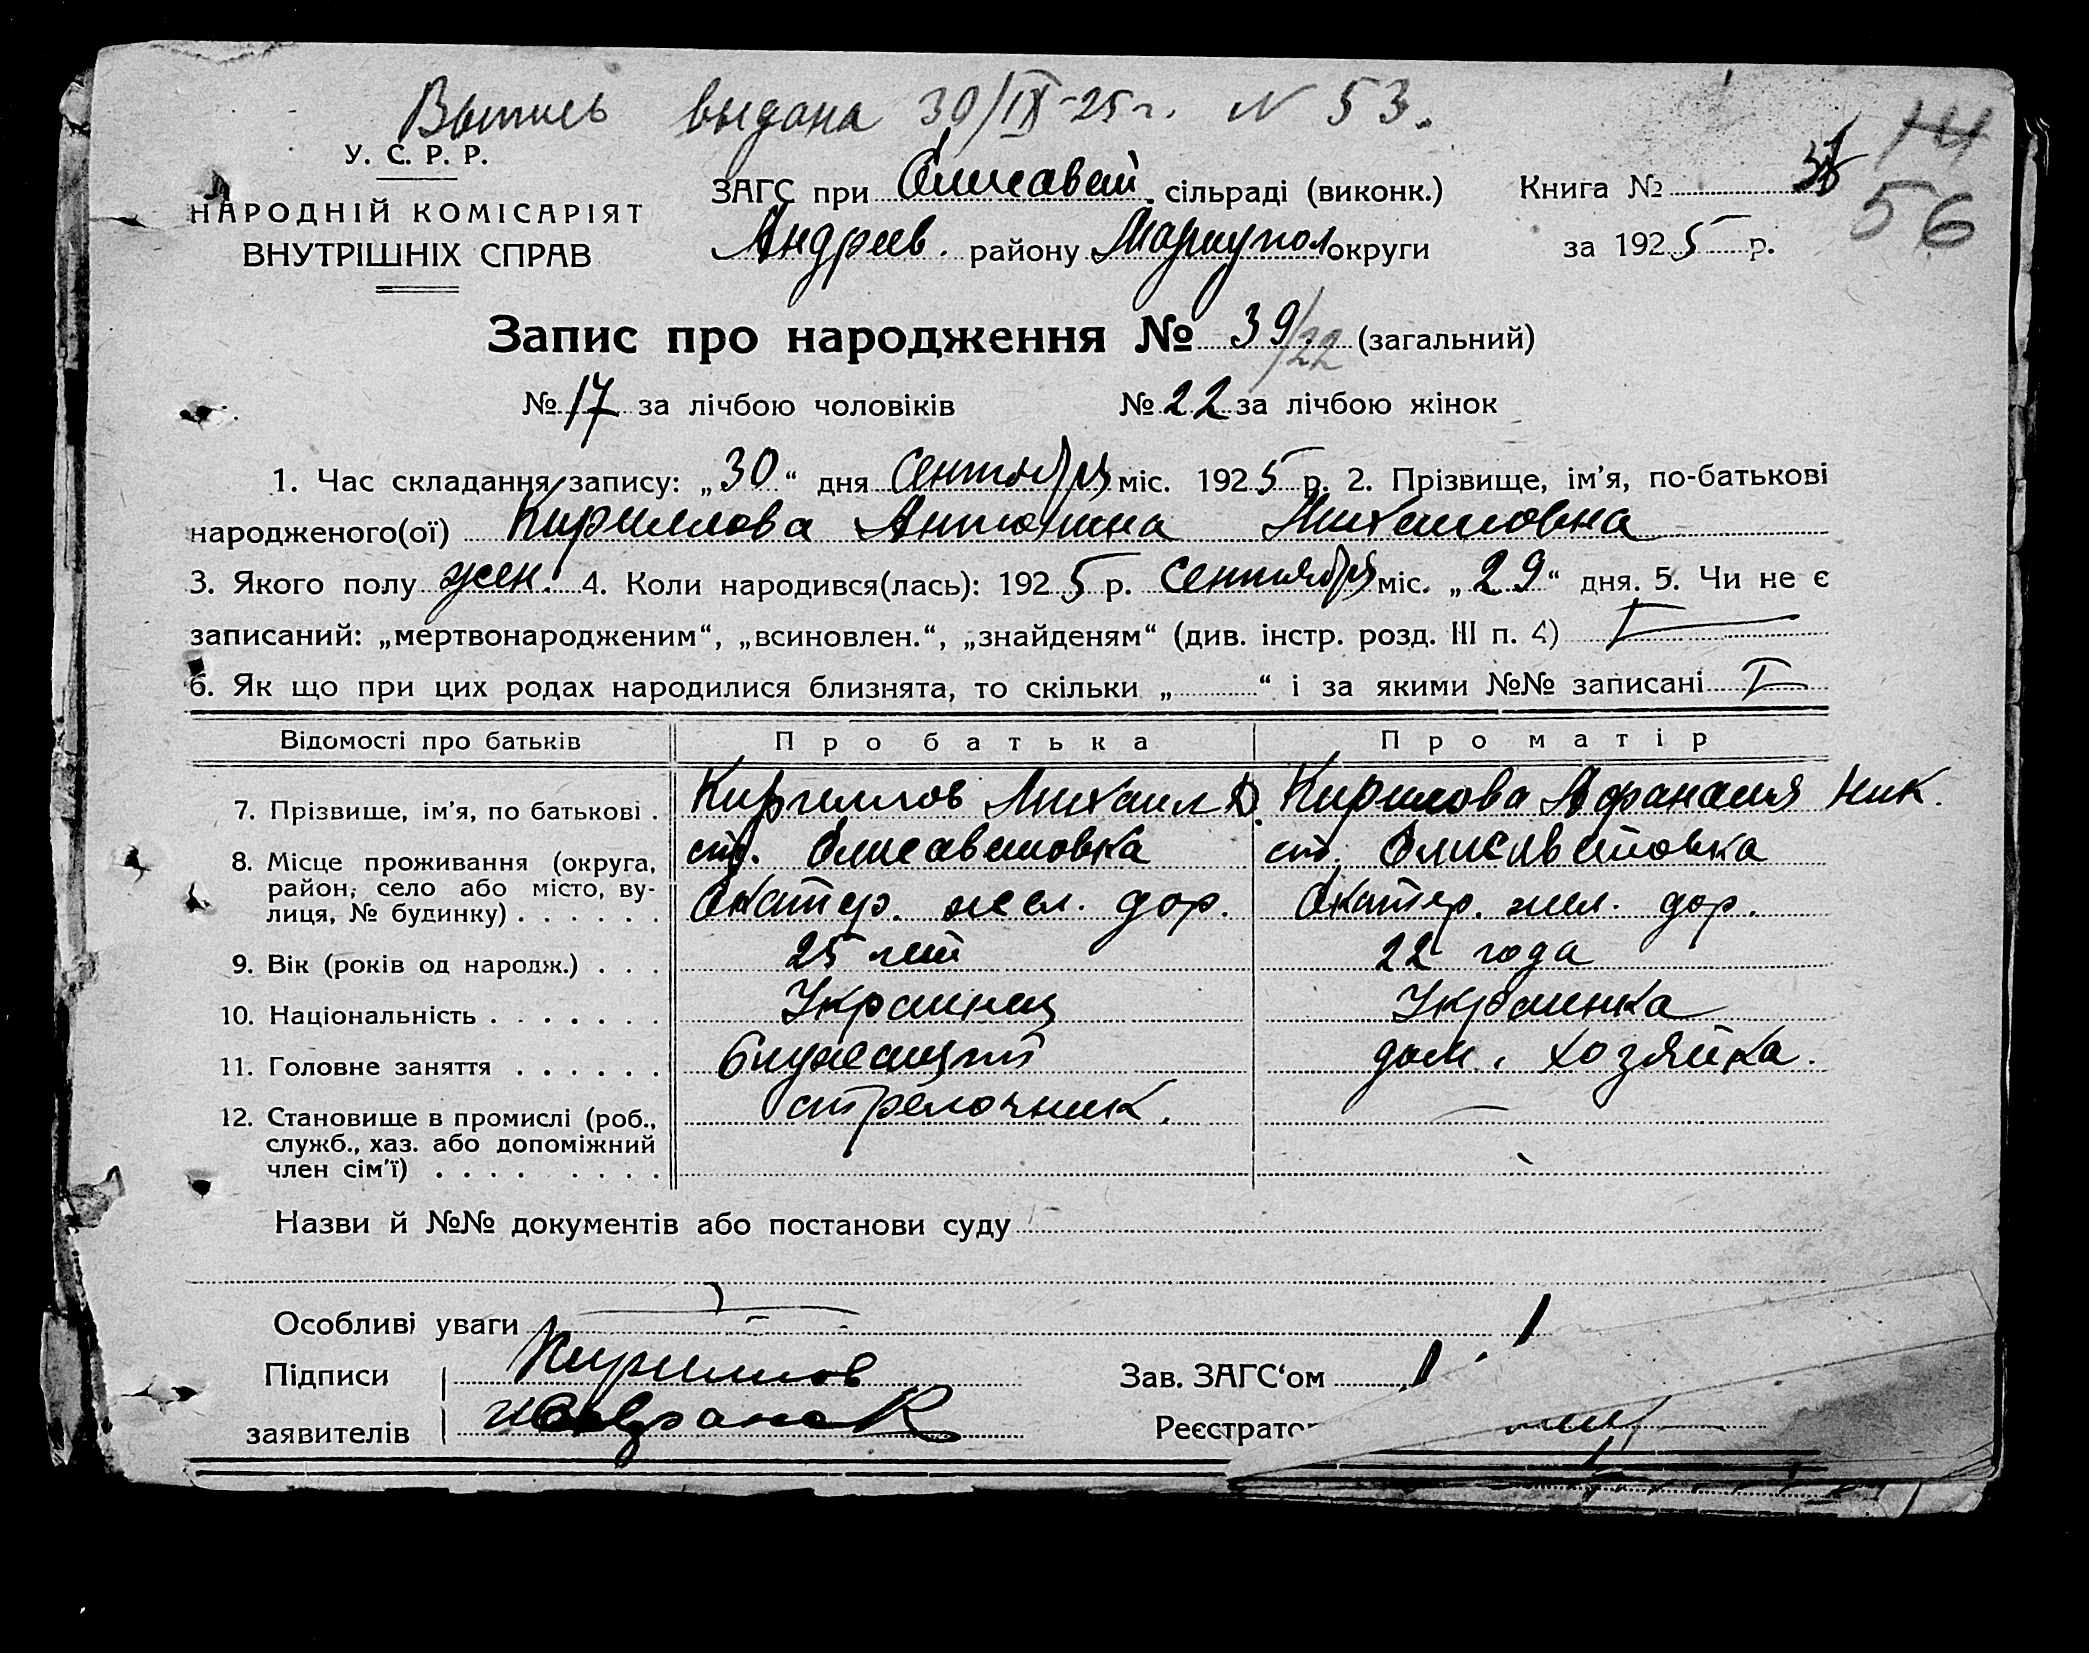 Выпись выдана 30/IX-25 г. N 53.
У. С. Р. Р.
НАРОДНІЙ КОМІСАРІЯТ
ВНУТРІШНІХ СПРАВ
ЗАГС при Елисавет. сільраді (виконк.)
Андреев. району Мариупол округи
Книга №
за 1925 р.
14
56
Запис про народження № 39/22 (загальний)
№ 17 за лічбою чоловіків № 22 за лічбою жінок
1. Час складання запису: „30“ дня Сентября міс. 1925 р. 2. Прізвище, ім’я, по-батькові
народженого(ої) Кириллова Антонина Михаиловна
3. Якого полу жен. 4. Коли народився(лась): 1925 р. Сентября міс. „29“ дня. 5. Чи не є
записаний: „мертвонародженим“, „всиновлен.“, „знайденям“ (див. інстр. розд. III п. 4)
6. Як що при цих родах народилися близнята, то скільки „ “ і за якими №№ записані
Відомості про батьків Про батька Про матір
7. Прізвище, ім’я, по батькові . Кириллов Михаил Д. Кирилова Афанасия Ник.
8. Місце проживання (округа, район, село або місто, вулиця, № будинку) . . . . . . ст. Елисаветовка ст. Елисаветовка
Екатер. жел. дор. Екатер. жел. дор.
9. Вік (років од народж.) . . . 25 лет 22 года
10. Національність . . . . . . . Украинец Украинка
11. Головне заняття . . . . . . Служащий дом. хозяйка.
12. Становище в промислі (роб., служб., хаз. або допоміжний член сім’ї) . . . . . . . . стрелочник.
Назви й №№ документів або постанови суду
Особливі уваги
Підписи Кириллов Зав. ЗАГС‘ом
заявителів Реєстратор